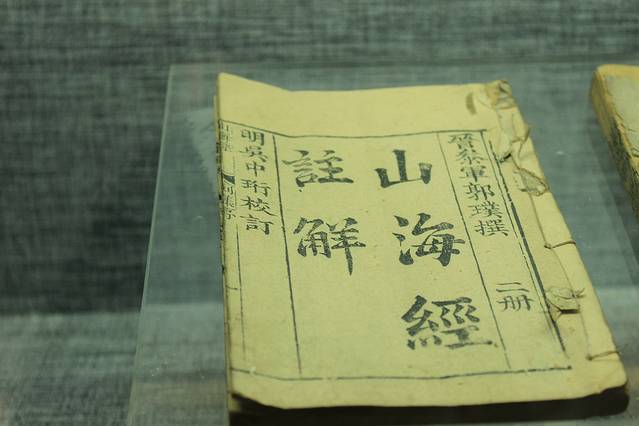 晉叅軍郭璞撰
二册
山海經
註解
明吳中珩校訂